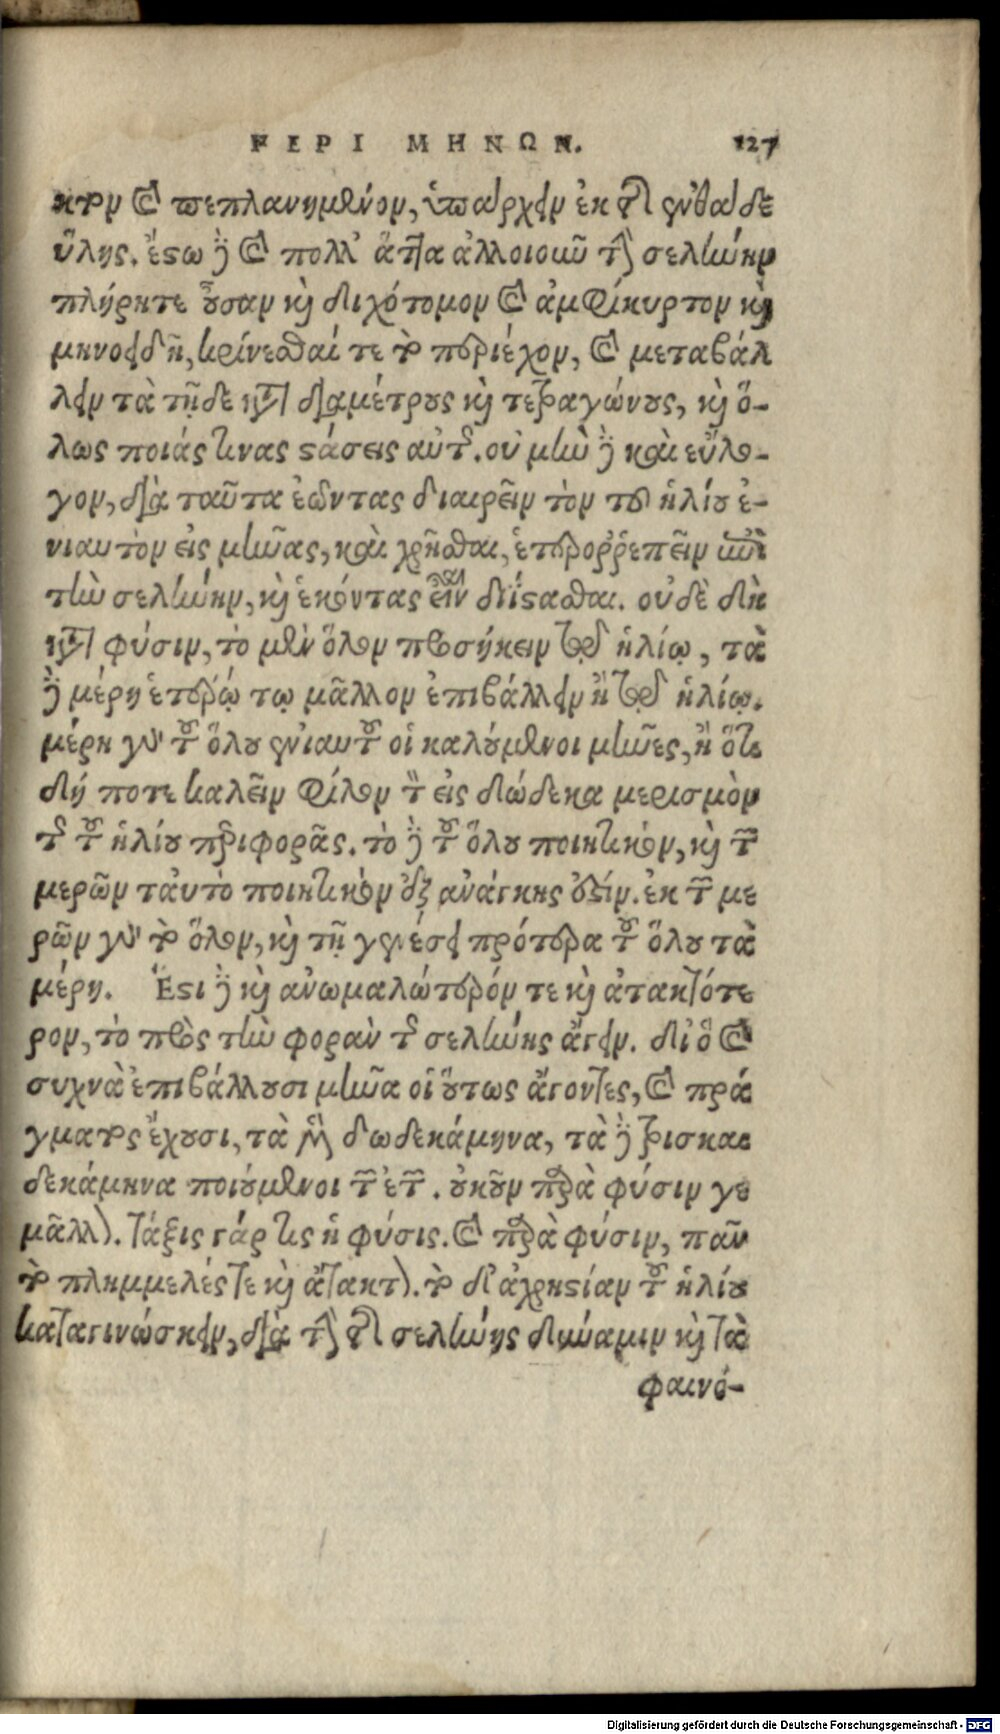 ΠΕΡΙ ΜΗΝΩΝ. 127
κτον καὶ πεπλανημένον, ὑπάρχειν ἐκ τῆς ἐνθάδε
ὕλης. ἔστω δὲ καὶ πολλ' ἄττα ἀλλοιοῦν τὴν σελήνην
πλήρη τε οὖσαν καὶ διχότομον καὶ ἀμφίκυρτον καὶ
μηνοειδῆ, κρίνεσθαί τε τὸ περιέχον, καὶ μεταβάλ
λειν τὰ τῇδε κατὰ διαμέτρους καὶ τετραγώνους, καὶ ὅ-
λως ποιάς τινας στάσεις αὐτῆς. οὐ μὴν δὲ καὶ εὔλο-
γον, διὰ ταῦτα ἐῶντας διαιρεῖν τὸν τοῦ ἡλίου ἐ-
νιαυτὸν εἰς μῆνας, καὶ χρῆσθαι, ἑτερορρεπεῖν ἐπὶ
τὴν σελήνην, καὶ ἑκόντας εἶναι διίστασθαι. οὐδὲ δὴ
κατὰ φύσιν, τὸ μὲν ὅλον προσήκειν τῷ ἡλίῳ, τὰ
δὲ μέρη ἑτέρῳ τῳ μᾶλλον ἐπιβάλλειν ἢ τῷ ἡλίῳ.
μέρη γὰρ τοῦ ὅλου ἐνιαυτοῦ οἱ καλούμενοι μῆνες, ἢ ὅτι
δή ποτε καλεῖν φίλον τὸν εἰς δώδεκα μερισμὸν
τῆς τοῦ ἡλίου περιφορᾶς. τὸ δὲ τοῦ ὅλου ποιητικὸν, καὶ τῶν
μερῶν ταὐτὸ ποιητικὸν ἐξ ἀνάγκης ἐστίν. ἐκ τῶν με
ρῶν γὰρ τὸ ὅλον, καὶ τῇ γενέσει πρότερα τοῦ ὅλου τὰ
μέρη. Ἔστι δὲ καὶ ἀνωμαλώτερόν τε καὶ ἀτακτότε
ρον, τὸ πρὸς τὴν φορὰν τῆς σελήνης ἄγειν. δι' ὃ καὶ
συχνὰ ἐπιβάλλουσι μῆνα οἱ οὕτως ἄγοντες, καὶ πρά
γματος ἔχουσι, τὰ μὲν δωδεκάμηνα, τὰ δὲ τρισκαι
δεκάμηνα ποιούμενοι τῶν ἐτῶν. οὐκοῦν παρὰ φύσιν γε
μᾶλλον. τάξις γάρ τις ἡ φύσις. καὶ παρὰ φύσιν, πᾶν
τὸ πλημμελές τε καὶ ἄτακτον. τὸ δ' ἀχρηστίαν τοῦ ἡλίου
καταγινώσκειν, διὰ τὴν τῆς σελήνης δύναμιν καὶ τὰ
φαινό-
Digitalisierung gefördert durch die Deutsche Forschungsgemeinschaft - DFG